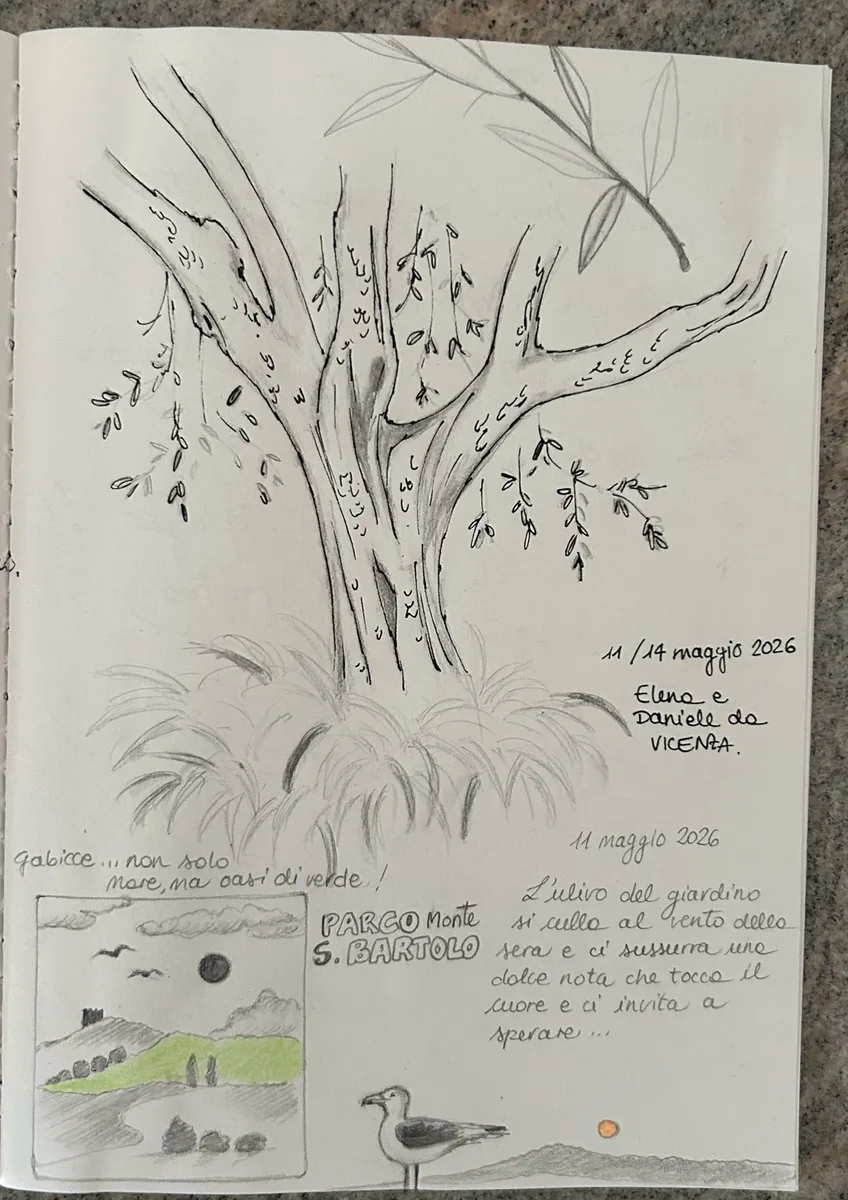 11/14 maggio 2026
Elena e
Daniele da
VICENZA.
11 maggio 2026
Gabicce... non solo
mare, ma oasi di verde!
PARCO Monte
S. BARTOLO
L'ulivo del giardino
si culla al vento della
sera e ci sussurra una
dolce nota che tocca il
cuore e ci invita a
sperare...